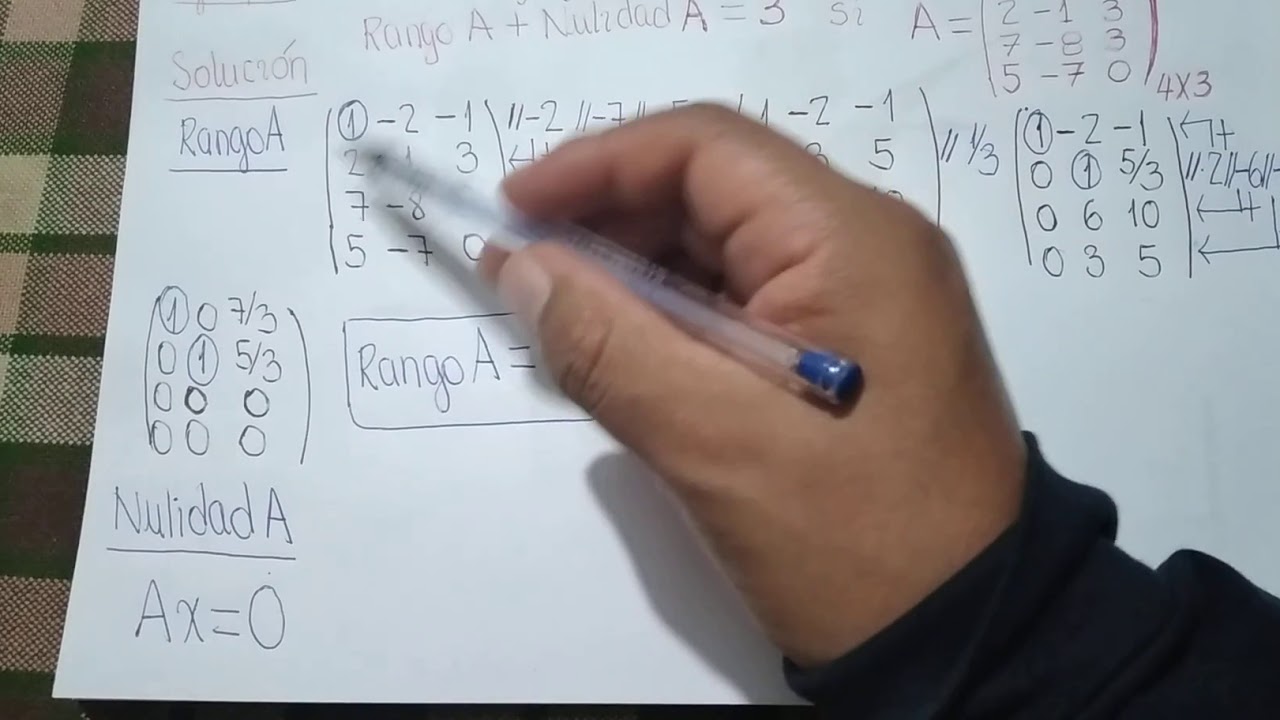 Rango A + Nulidad A = 3 si A =
2 -1 3
7 -8 3
5 -7 0
4X3
Solución
Rango A
1 -2 -1 //-2 //-7 // 1 -2 -1
2 3 5 // 1/3
7 -8
5 -7 0
1 -2 -1 +
0 1 5/3
0 6 10 +
0 3 5
1 0 7/3
0 1 5/3
0 0 0
0 0 0
Rango A =
Nulidad A
Ax=0